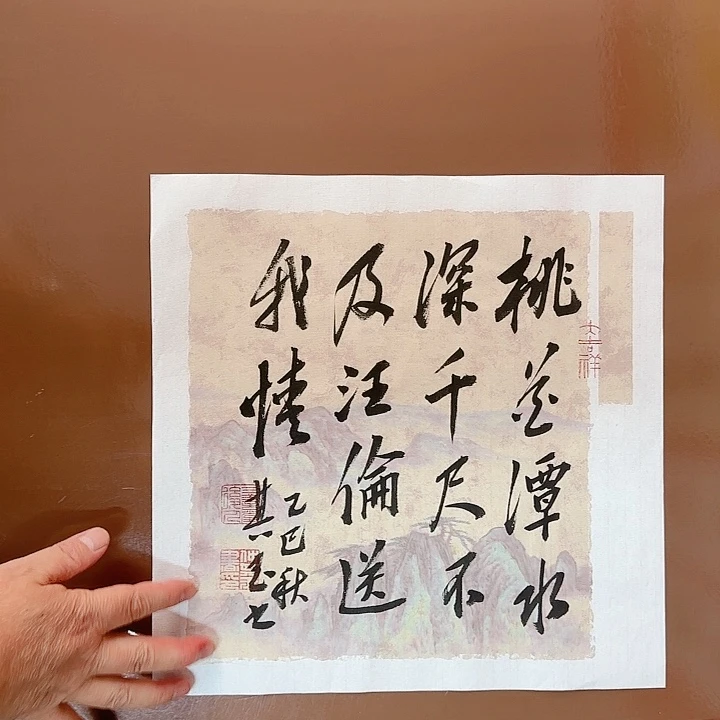 桃花潭水
深千尺不
及汪倫送
我情
乙巳秋
大吉祥